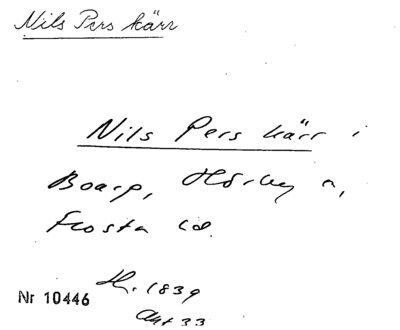 Nils Pers kärr
Nils Pers kärr i
Boarp, Hörby s,
Frosta hd.
H. 1839
Nr 10446
Akt 33